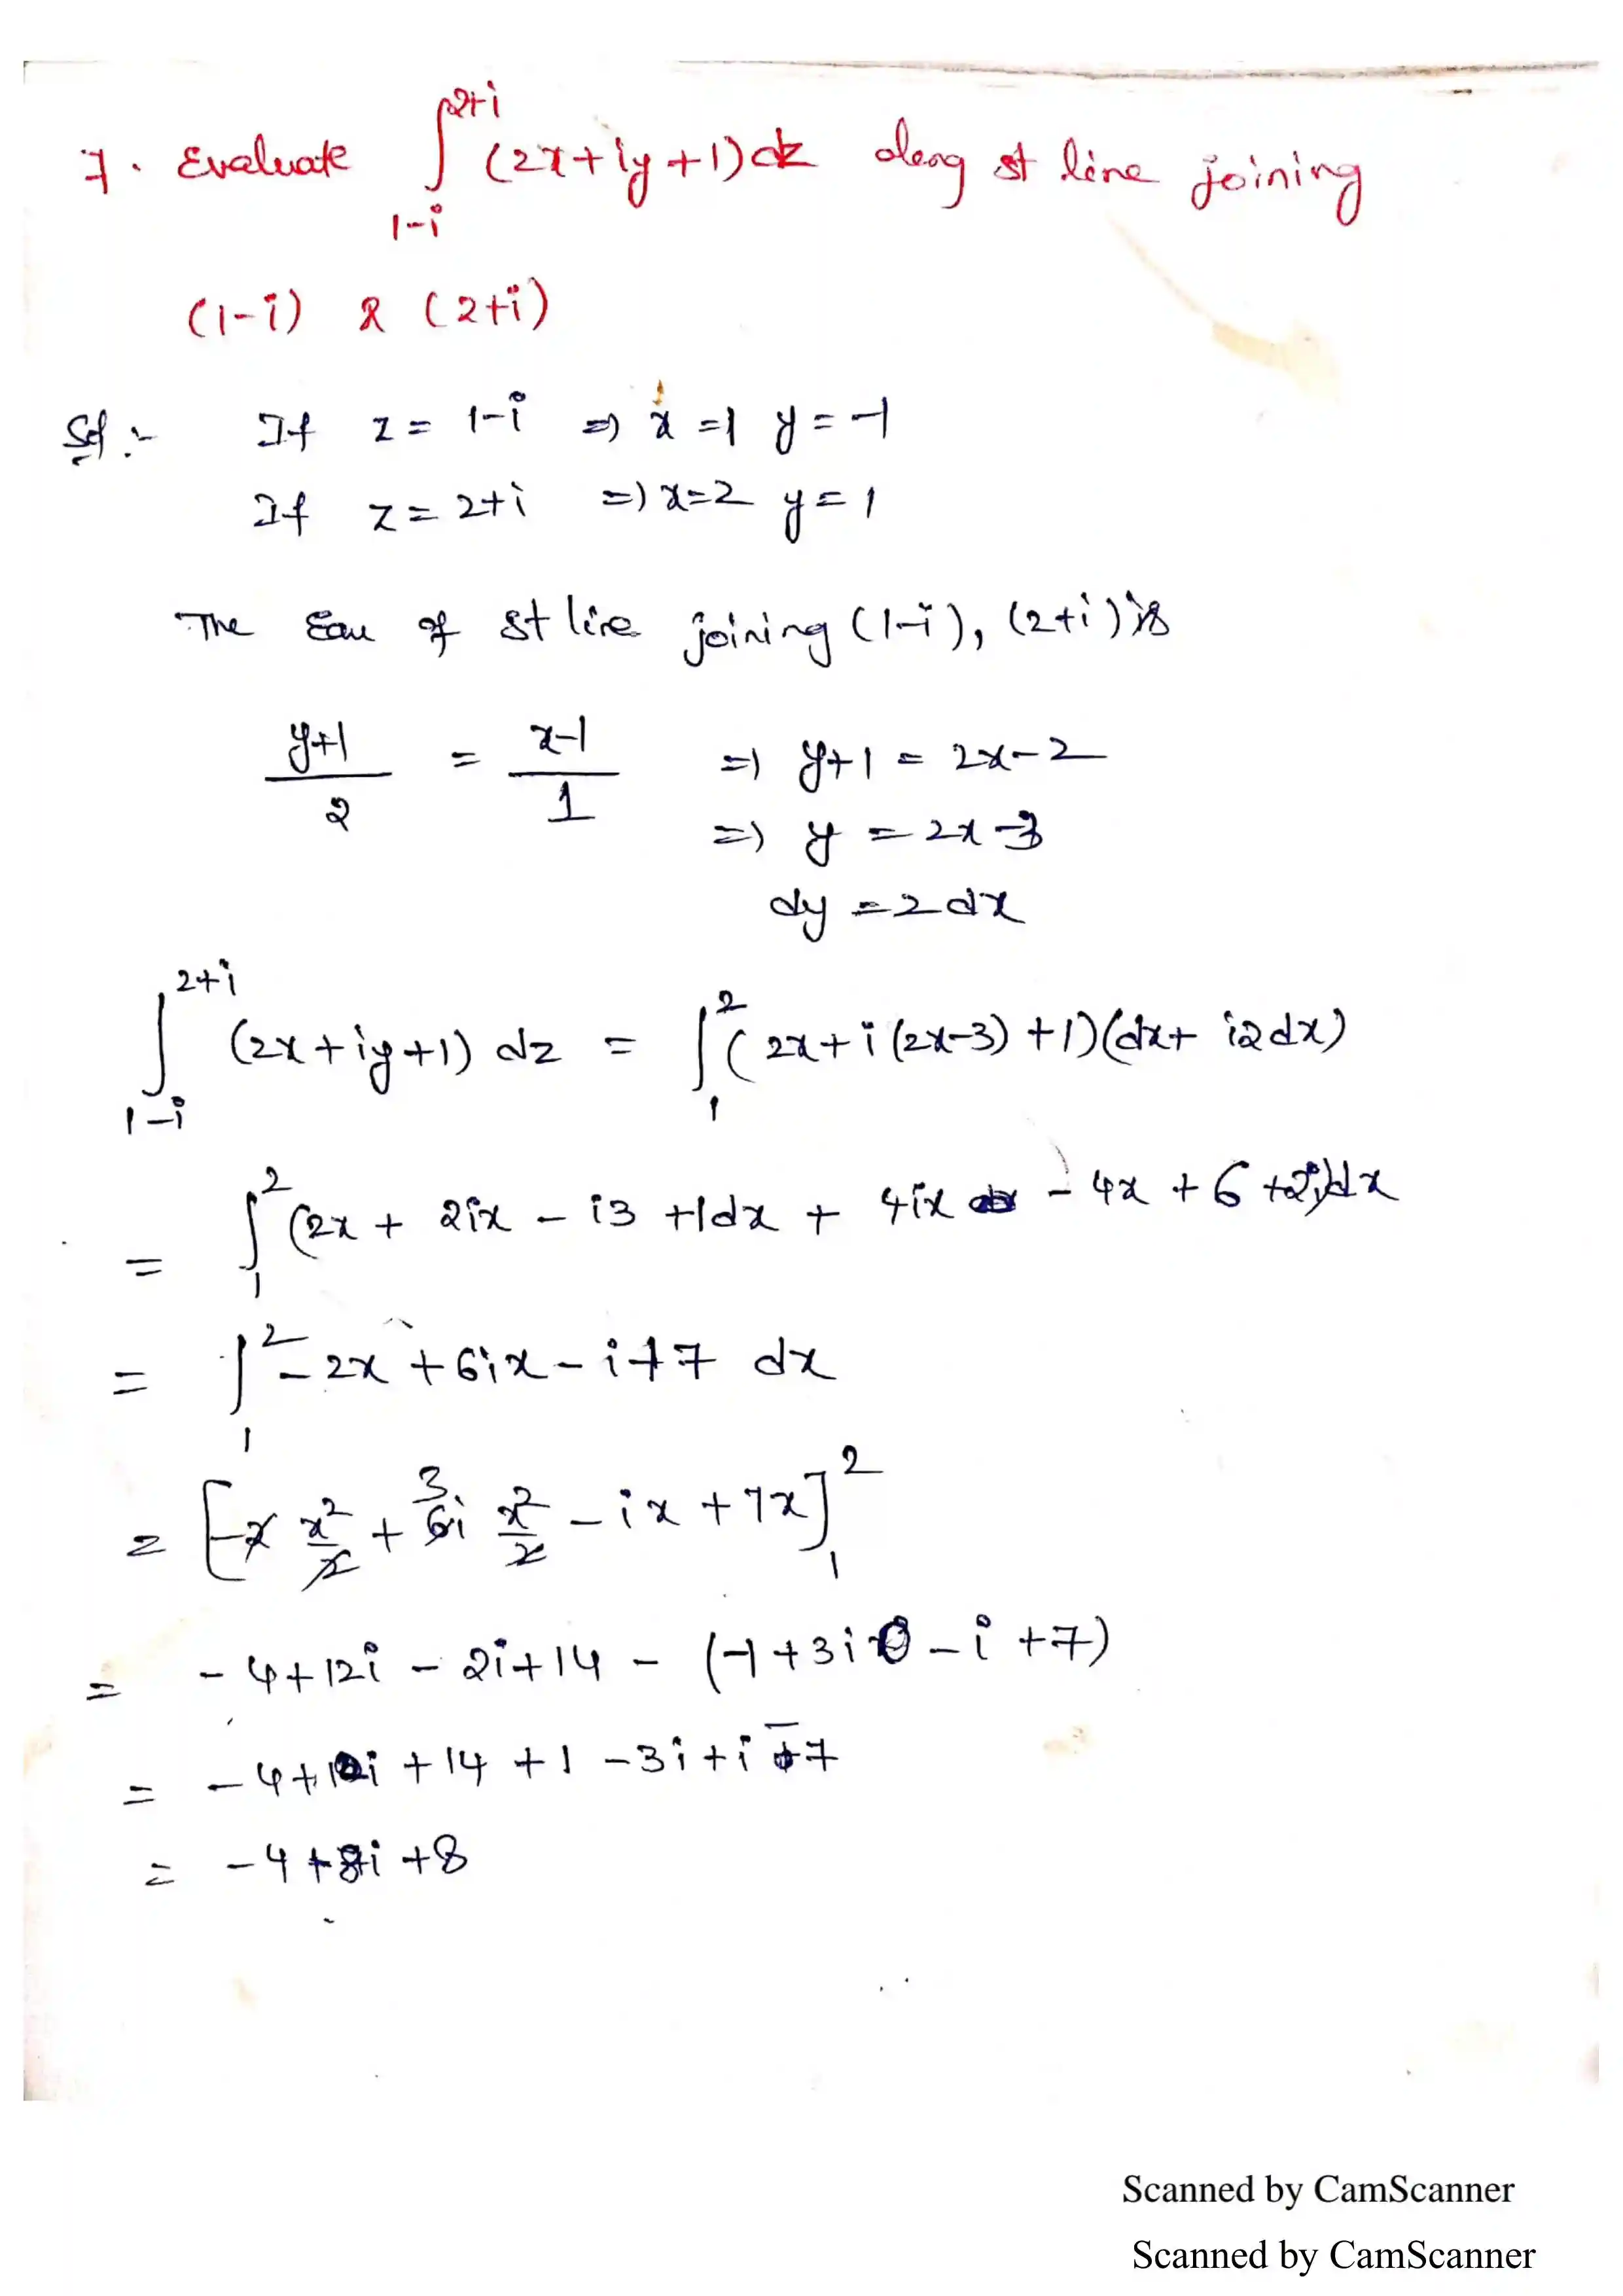 7. Evaluate ∫_{1-i}^{2+i} (2x+iy+1)dz along st line joining
(1-i) & (2+i)
Sol :- If z = 1-i => x=1 y=-1
If z = 2+i => x=2 y=1
The Equ of st line joining (1-i), (2+i) is
(y+1)/2 = (x-1)/1 => y+1 = 2x-2
=> y = 2x-3
dy = 2dx
∫_{1-i}^{2+i} (2x+iy+1) dz = ∫_1^2 (2x+i(2x-3)+1)(dx+i2dx)
= ∫_1^2 (2x + 2ix - i3 +1dx + 4ix - 4x + 6 +2i)dx
= ∫_1^2 -2x+6ix-i+7 dx
= [-2 x²/2 + 6i x²/2 - ix + 7x]_1^2
= -4+12i - 2i+14 - (-1+3i - i +7)
= -4+10i +14 +1 -3i+i -7
= -4+8i+8
Scanned by CamScanner
Scanned by CamScanner